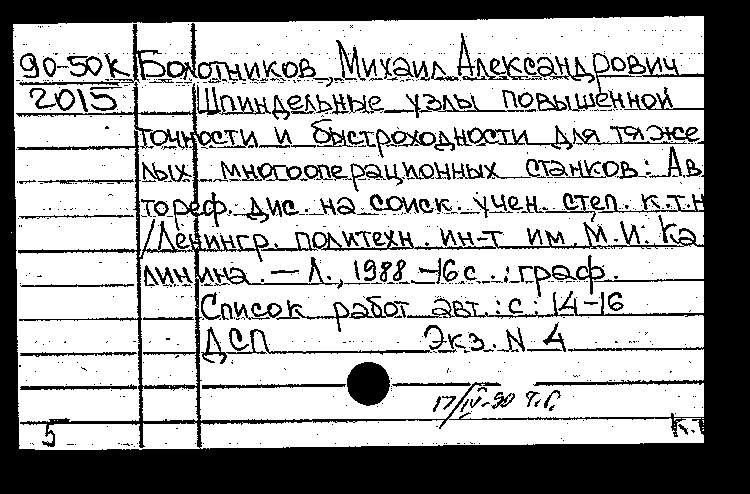 90-50к Болотников, Михаил Александрович
2015 Шпиндельные узлы повышенной
точности и быстроходности для тяже
лых многооперационных станков: Ав
тореф. дис. на соиск. учен. степ. к.т.н
/Ленингр. политехн. ин-т им. М.И. Ка
линина. — Л., 1988. -16 с. : граф.
Список работ авт.: с: 14-16
ДСП Экз. N 4
17/IV-90 Т.Г.
5